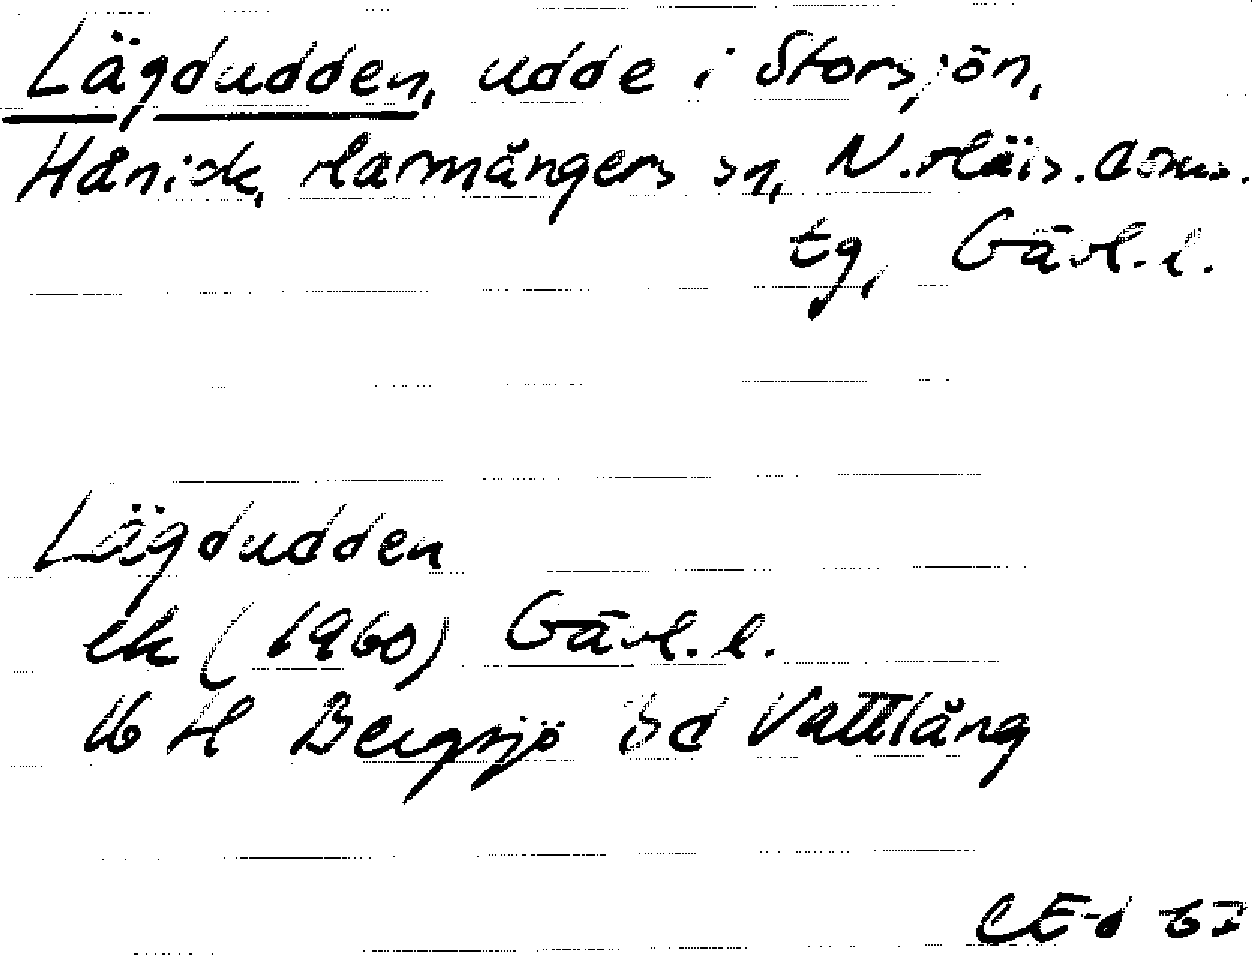 Lägdudden, udde i Storsjön,
Hånick, Harmångers sn, N. Häls. doms.
tg, Gävl. l.
Lägdudden
ek (1960) Gävl. l.
16 H Bergsjö öd Vattlång
CE-d 62